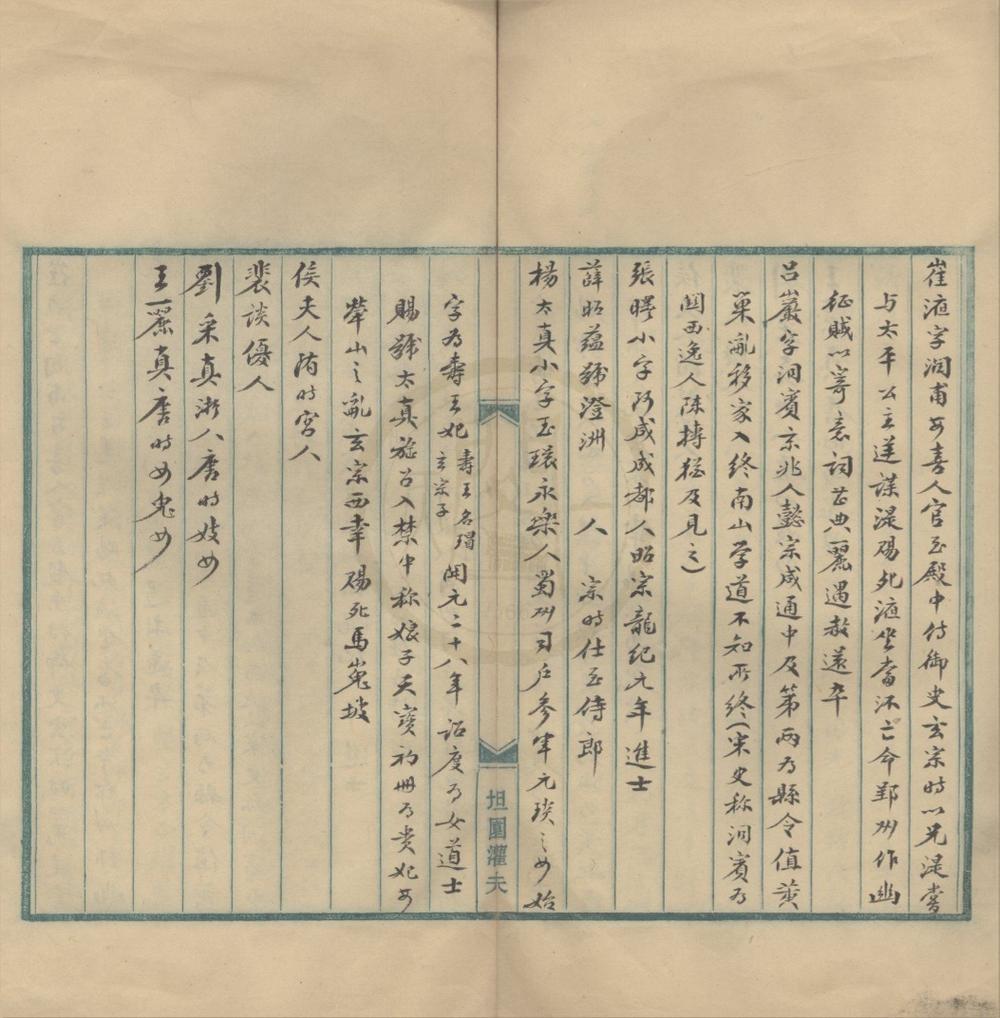 崔液字润甫安喜人官至殿中侍御史玄宗时以兄湜嘗
与太平公主逆谋湜赐死液坐當流亡命郢州作幽
征賦以寄意词甚典麗遇赦還卒
吕巖字洞賓京兆人懿宗咸通中及第两为縣令值黄
巢亂移家入终南山学道不知所终(宋史称洞賓为
関西逸人陈摶猶及見之)
張曙小字阿咸成都人昭宗龍纪元年進士
薛昭蕴號澄洲 人 宗时仕至侍郎
楊太真小字玉環永樂人蜀州司户參军元琰之女始
字为壽王妃壽王名瑁玄宗子開元二十八年诏度为女道士
賜號太真旋召入禁中称娘子天寶初冊为貴妃安
犖山之亂玄宗西幸赐死馬嵬坡
侯夫人隋时宫人
裴談優人
劉采真浙人唐时妓女
王麗真唐时女鬼女
坦園灌夫